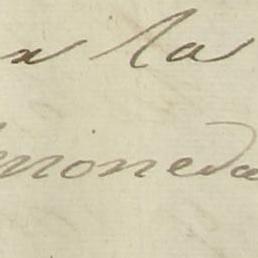 a la
moneda